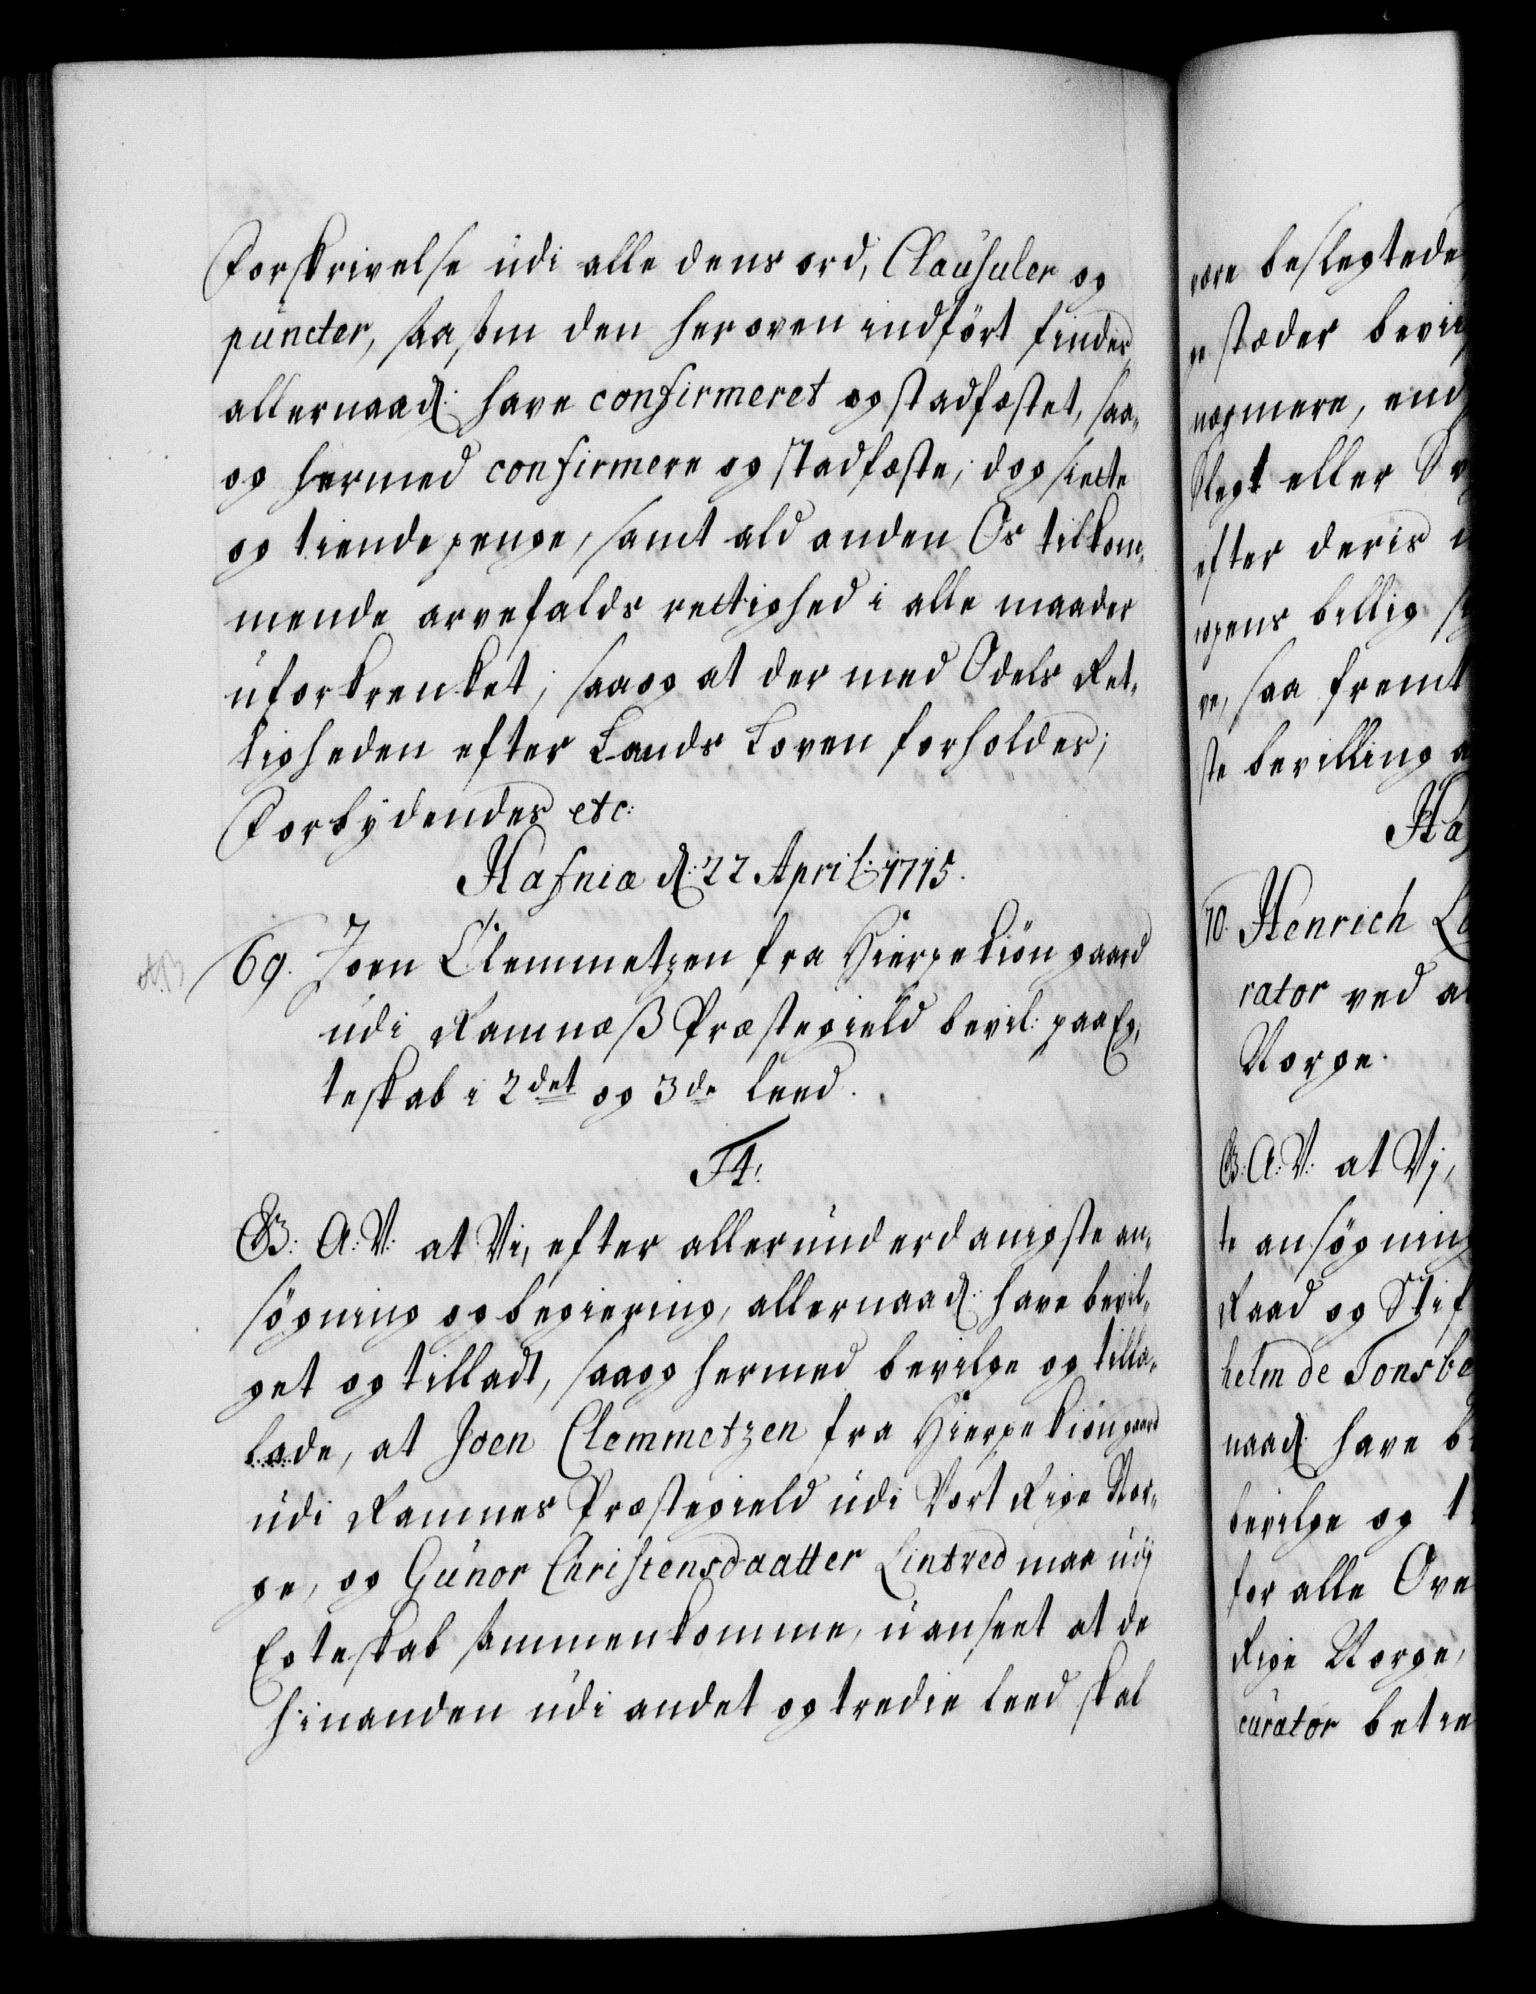 Forskrivelse udi alle dens ord, Clausuler og
puncter, saasom den her oven indført findes
allernaad: have confirmeret og stadfæstet, saa-
og hermed confirmere og stadfæste; dog siette
og tiende penge, samt ald anden Os tilkom-
mende arvefalds rettighed i alle maader
uforkrenket; saa og at der med Odels Ret-
tigheden efter Lands Loven forholdes;
Forbydendes etc:
Hafniæ d: 22 April: 1715.
69. Joen Clemmetzen fra Hierpekiøn gaard
udi Ramnæß Præstegield bevil: paa Eg-
teskab i 2det og 3de leed.
F4:
G: A: V: at Vi, efter allerunderdanigste an-
søgning og begiering, allernaad: have bevil-
get og tilladt, saa og hermed bevilge og tilla-
lade, at Joen Clemmetzen fra Hierpekiøn gaard
udi Ramnes Præstegield udi Vort Rige Nor-
ge, og Gunor Christensdaatter Lintved maa udj
Egteskab sammenkomme, uanseet at de
hinanden udi andet og tredie leed skal
være beslegtede
stæder bevil
nogmere, end
Slegt eller Sv
efter deris
ogens billig
ve, saa fremt
ste bevilling
Ha
70. Henrich
rator ved
Norge.
G: A: V: at Vj,
te ansøgning
Raad og Stif
helm de Tonsbe
naad: have b
bevilge og t
for alle Ove
Rige Norge,
curator betie